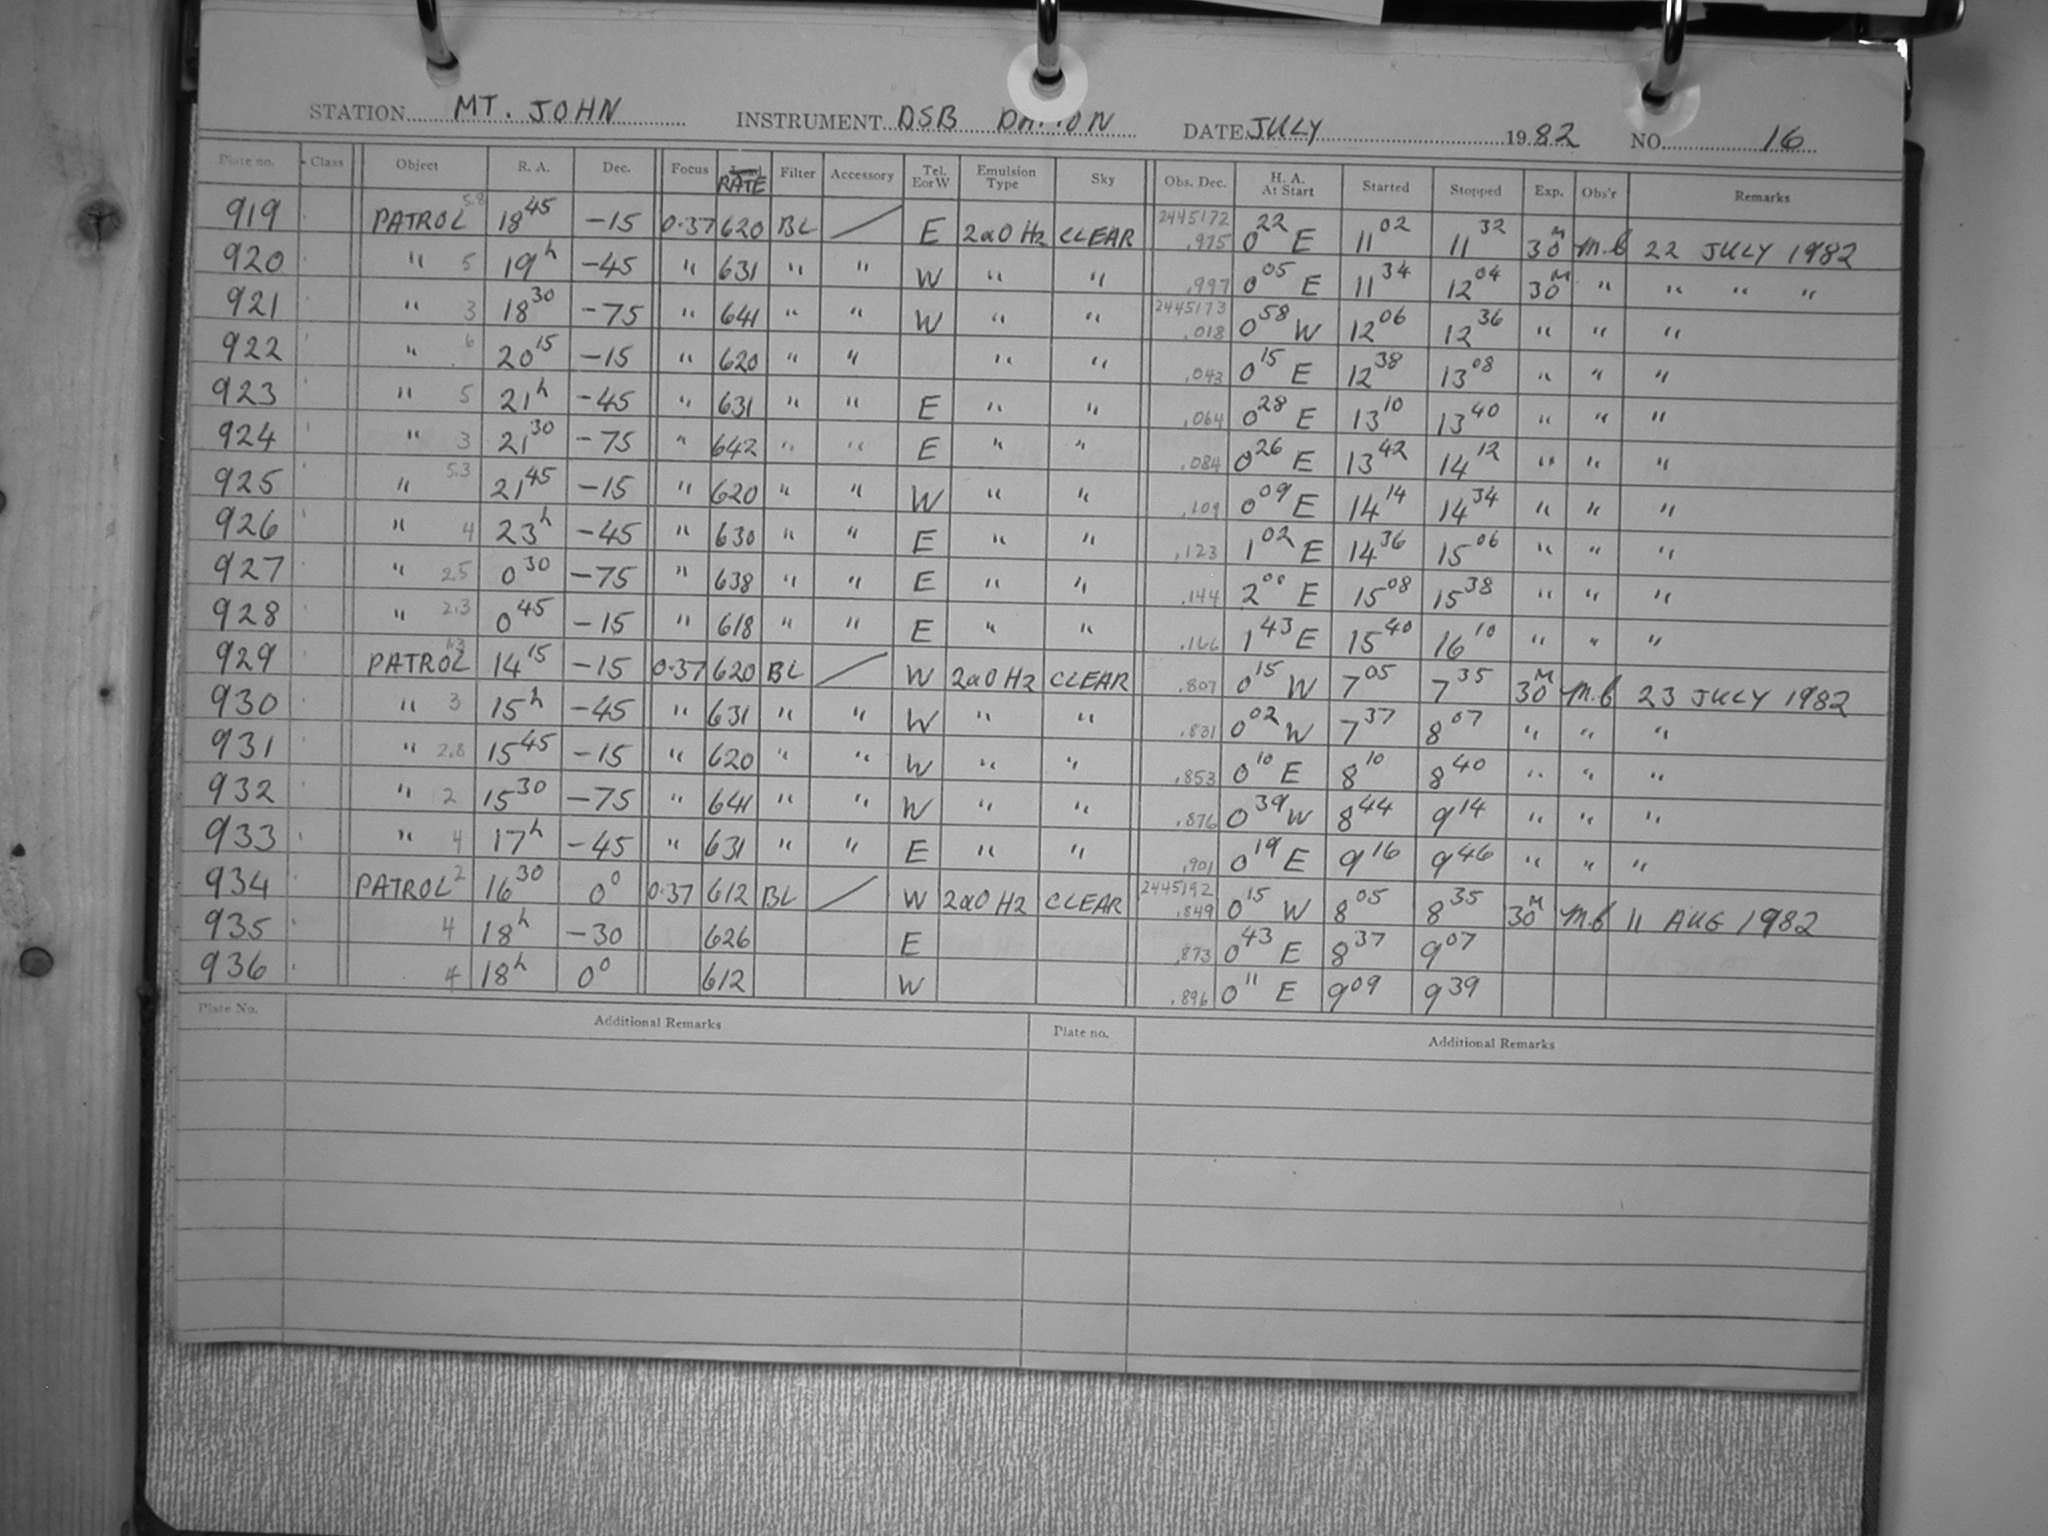 STATION MT. JOHN INSTRUMENT DSB DAMON DATE JULY 1982 NO. 16
Plate no. Class Object R. A. Dec. Focus RATE Filter Accessory Tel. E or W Emulsion Type Sky Obs. Dec. H. A. At Start Started Stopped Exp. Obs'r Remarks
919 PATROL 5.8 18 45 -15 0.37 620 BL / E 2aO H2 CLEAR 2445172 .975 0 22 E 11 02 11 32 30 M m.b 22 JULY 1982
920 " 5 19 h -45 " 631 " " W " " .997 0 05 E 11 34 12 04 30 M " " " "
921 " 3 18 30 -75 " 641 " " W " " 2445173 .018 0 58 W 12 06 12 36 " " "
922 " 6 20 15 -15 " 620 " " " " .043 0 15 E 12 38 13 08 " " "
923 " 5 21 h -45 " 631 " " E " " .064 0 28 E 13 10 13 40 " " "
924 " 3 21 30 -75 " 642 " " E " " .084 0 26 E 13 42 14 12 " " "
925 " 5.3 21 45 -15 " 620 " " W " " .109 0 09 E 14 14 14 34 " " "
926 " 4 23 h -45 " 630 " " E " " .123 1 02 E 14 36 15 06 " " "
927 " 2.5 0 30 -75 " 638 " " E " " .144 2 00 E 15 08 15 38 " " "
928 " 2.3 0 45 -15 " 618 " " E " " .166 1 43 E 15 40 16 10 " " "
929 PATROL 14 15 -15 0.37 620 BL / W 2aO H2 CLEAR .807 0 15 W 7 05 7 35 30 M m.b 23 JULY 1982
930 " 3 15 h -45 " 631 " " W " " .831 0 02 W 7 37 8 07 " " "
931 " 2.8 15 45 -15 " 620 " " W " " .853 0 10 E 8 10 8 40 " " "
932 " 2 15 30 -75 " 641 " " W " " .876 0 39 W 8 44 9 14 " " "
933 " 4 17 h -45 " 631 " " E " " .901 0 19 E 9 16 9 46 " " "
934 PATROL 2 16 30 0 0 0.37 612 BL / W 2aO H2 CLEAR 2445192 .849 0 15 W 8 05 8 35 30 M m.b 11 AUG 1982
935 4 18 h -30 626 E .873 0 43 E 8 37 9 07
936 4 18 h 0 0 612 W .896 0 11 E 9 09 9 39
Plate No. Additional Remarks Plate no. Additional Remarks